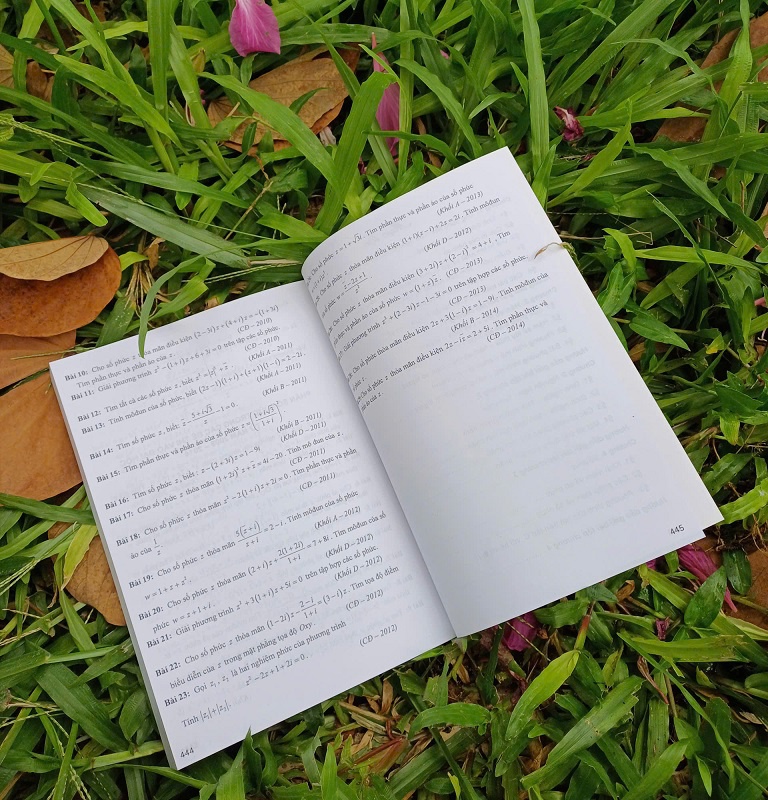 Bài 10: Cho số phức z thỏa mãn điều kiện (2−3i)z+(4+i)z̄=−(1+3i)².
Tìm phần thực và phần ảo của z. (CĐ – 2010)
Bài 11: Giải phương trình z²−(1+i)z+6+3i=0 trên tập các số phức.
(CĐ – 2010)
Bài 12: Tìm tất cả các số phức z, biết z²=|z|²+z̄. (Khối A – 2011)
Bài 13: Tính môđun của số phức, biết (2z−1)(1+i)+(z̄+1)(1−i)=2−2i.
(Khối A – 2011)
Bài 14: Tìm số phức z, biết: z̄−(5+i√3)/z−1=0. (Khối B – 2011)
Bài 15: Tìm phần thực và phần ảo của số phức z=((1+i√3)/(1+i))³
(Khối B – 2011)
Bài 16: Tìm số phức z, biết: z−(2+3i)z̄=1−9i (Khối D – 2011)
Bài 17: Cho số phức z thỏa mãn (1+2i)²z+z̄=4i−20. Tính mô đun của z.
(CĐ – 2011)
Bài 18: Cho số phức z thỏa mãn z²−2(1+i)z+2i=0. Tìm phần thực và phần
ảo của 1/z. (CĐ – 2011)
Bài 19: Cho số phức z thỏa mãn 5(z̄+i)/(z+i)=2−i. Tính môđun của số phức
w=1+z+z². (Khối A – 2012)
Bài 20: Cho số phức z thỏa mãn (2+i)z+2(1+2i)/(1+i)=7+8i. Tìm môđun của số
phức w=z+1+i. (Khối D – 2012)
Bài 21: Giải phương trình z²+3(1+i)z+5i=0 trên tập hợp các số phức.
(Khối D – 2012)
Bài 22: Cho số phức z thỏa mãn (1−2i)z−(2−i)/(1+i)=(3−i)z. Tìm toạ độ điểm
biểu diễn của z trong mặt phẳng toạ độ Oxy. (CĐ – 2012)
Bài 23: Gọi z₁, z₂ là hai nghiệm phức của phương trình
z²−2z+1+2i=0. (CĐ – 2012)
Tính |z₁|+|z₂|.
444
Cho số phức z=1+√3i. Tìm phần thực và phần ảo của số phức
(Khối A – 2013)
Cho số phức z thỏa mãn điều kiện (1+i)(z−i)+2z=2i. Tính môđun
số phức w=(z̄−2z+1)/z². (Khối D – 2012)
số phức z thỏa mãn điều kiện (1+2i)z+(2−i)²=4+i. Tìm
phần ảo của số phức w=(1+z)z̄. (CĐ – 2013)
Giải phương trình z²+(2−3i)z−1−3i=0 trên tập hợp các số phức.
(CĐ – 2013)
Cho số phức z thỏa mãn điều kiện 2z+3(1−i)z̄=1−9i. Tính môđun của
(Khối B – 2014)
số phức z thỏa mãn điều kiện 2z−iz̄=2+5i. Tìm phần thực và
ảo của z. (CĐ – 2014)
445